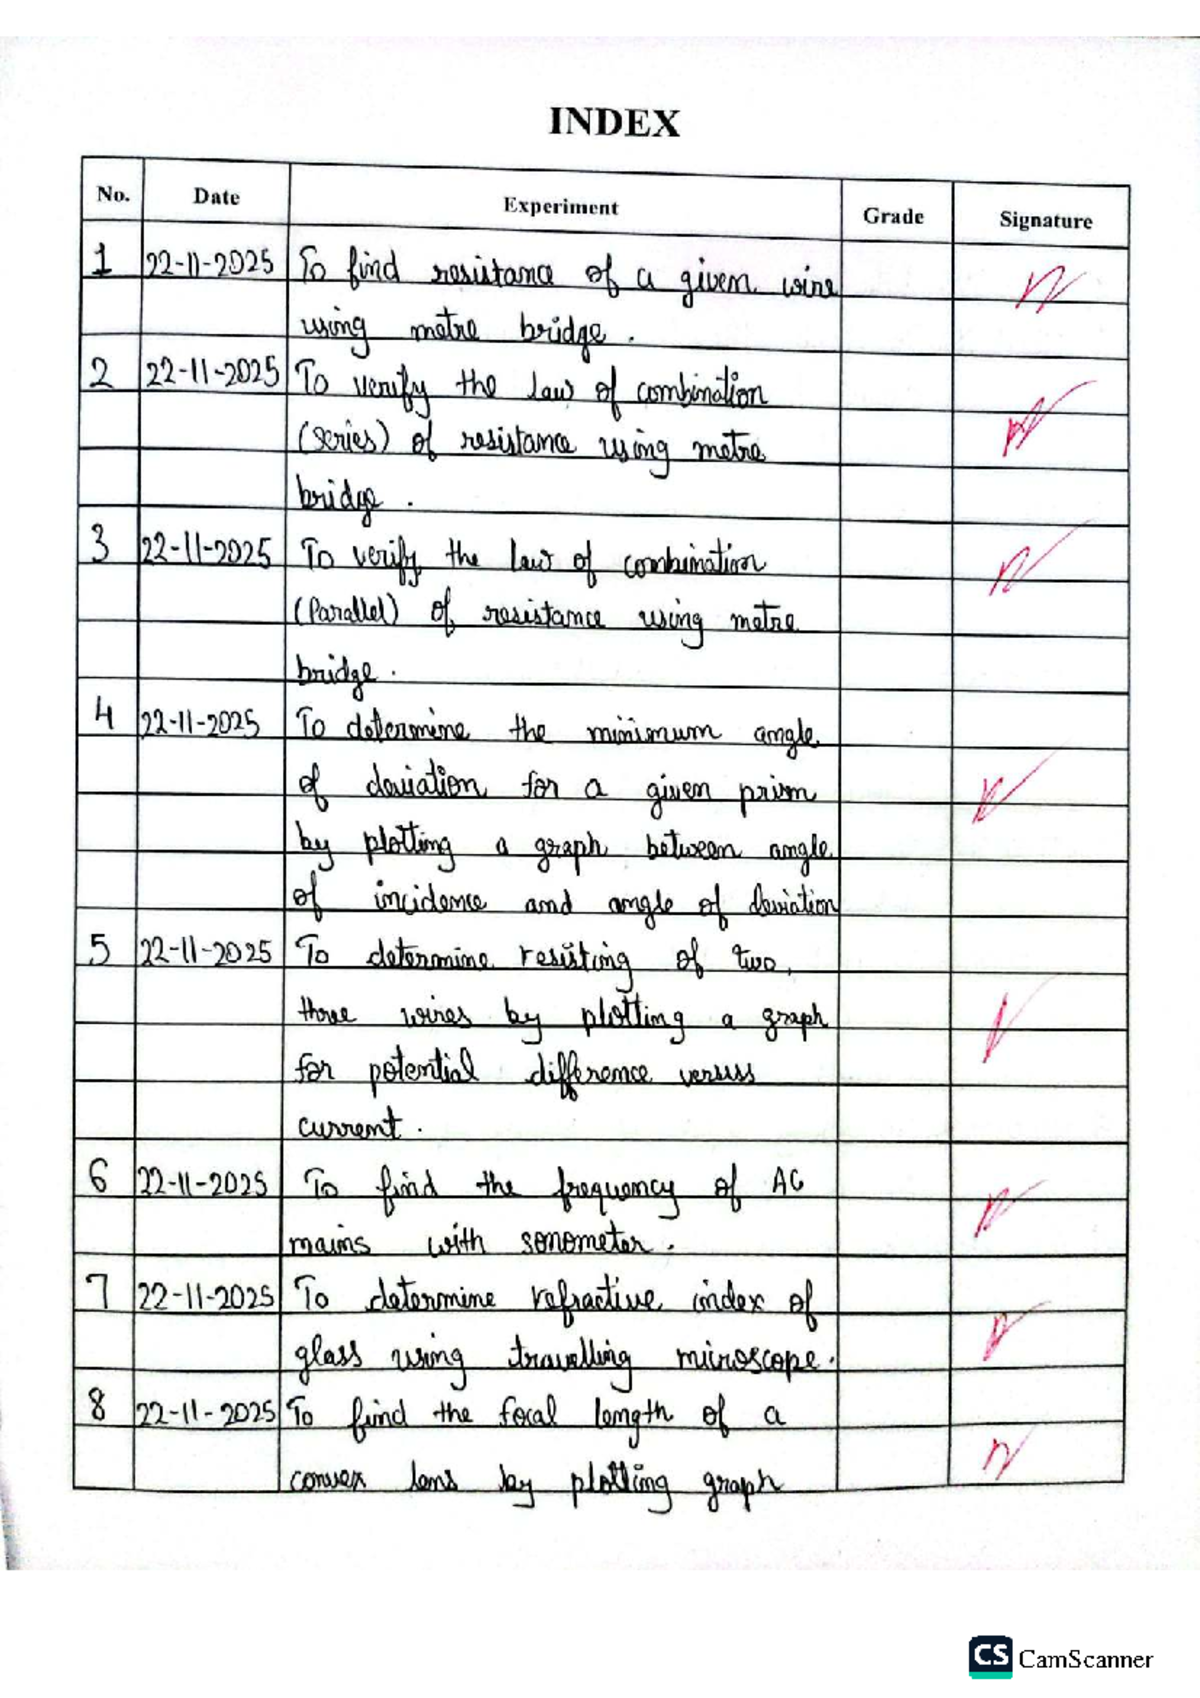 INDEX
No. Date Experiment Grade Signature
1 22-11-2025 To find resistance of a given wire
using metre bridge.
2 22-11-2025 To verify the law of combination
(series) of resistance using metre
bridge.
3 22-11-2025 To verify the law of combination
(Parallel) of resistance using metre
bridge.
4 22-11-2025 To determine the minimum angle
of deviation for a given prism
by plotting a graph between angle
of incidence and angle of deviation
5 22-11-2025 To determine resisting of two,
three wires by plotting a graph
for potential difference versuss
current.
6 22-11-2025 To find the frequency of AC
mains with sonometer.
7 22-11-2025 To determine refractive index of
glass using travelling microscope.
8 22-11-2025 To find the focal length of a
convex lens by plotting graph
CS CamScanner